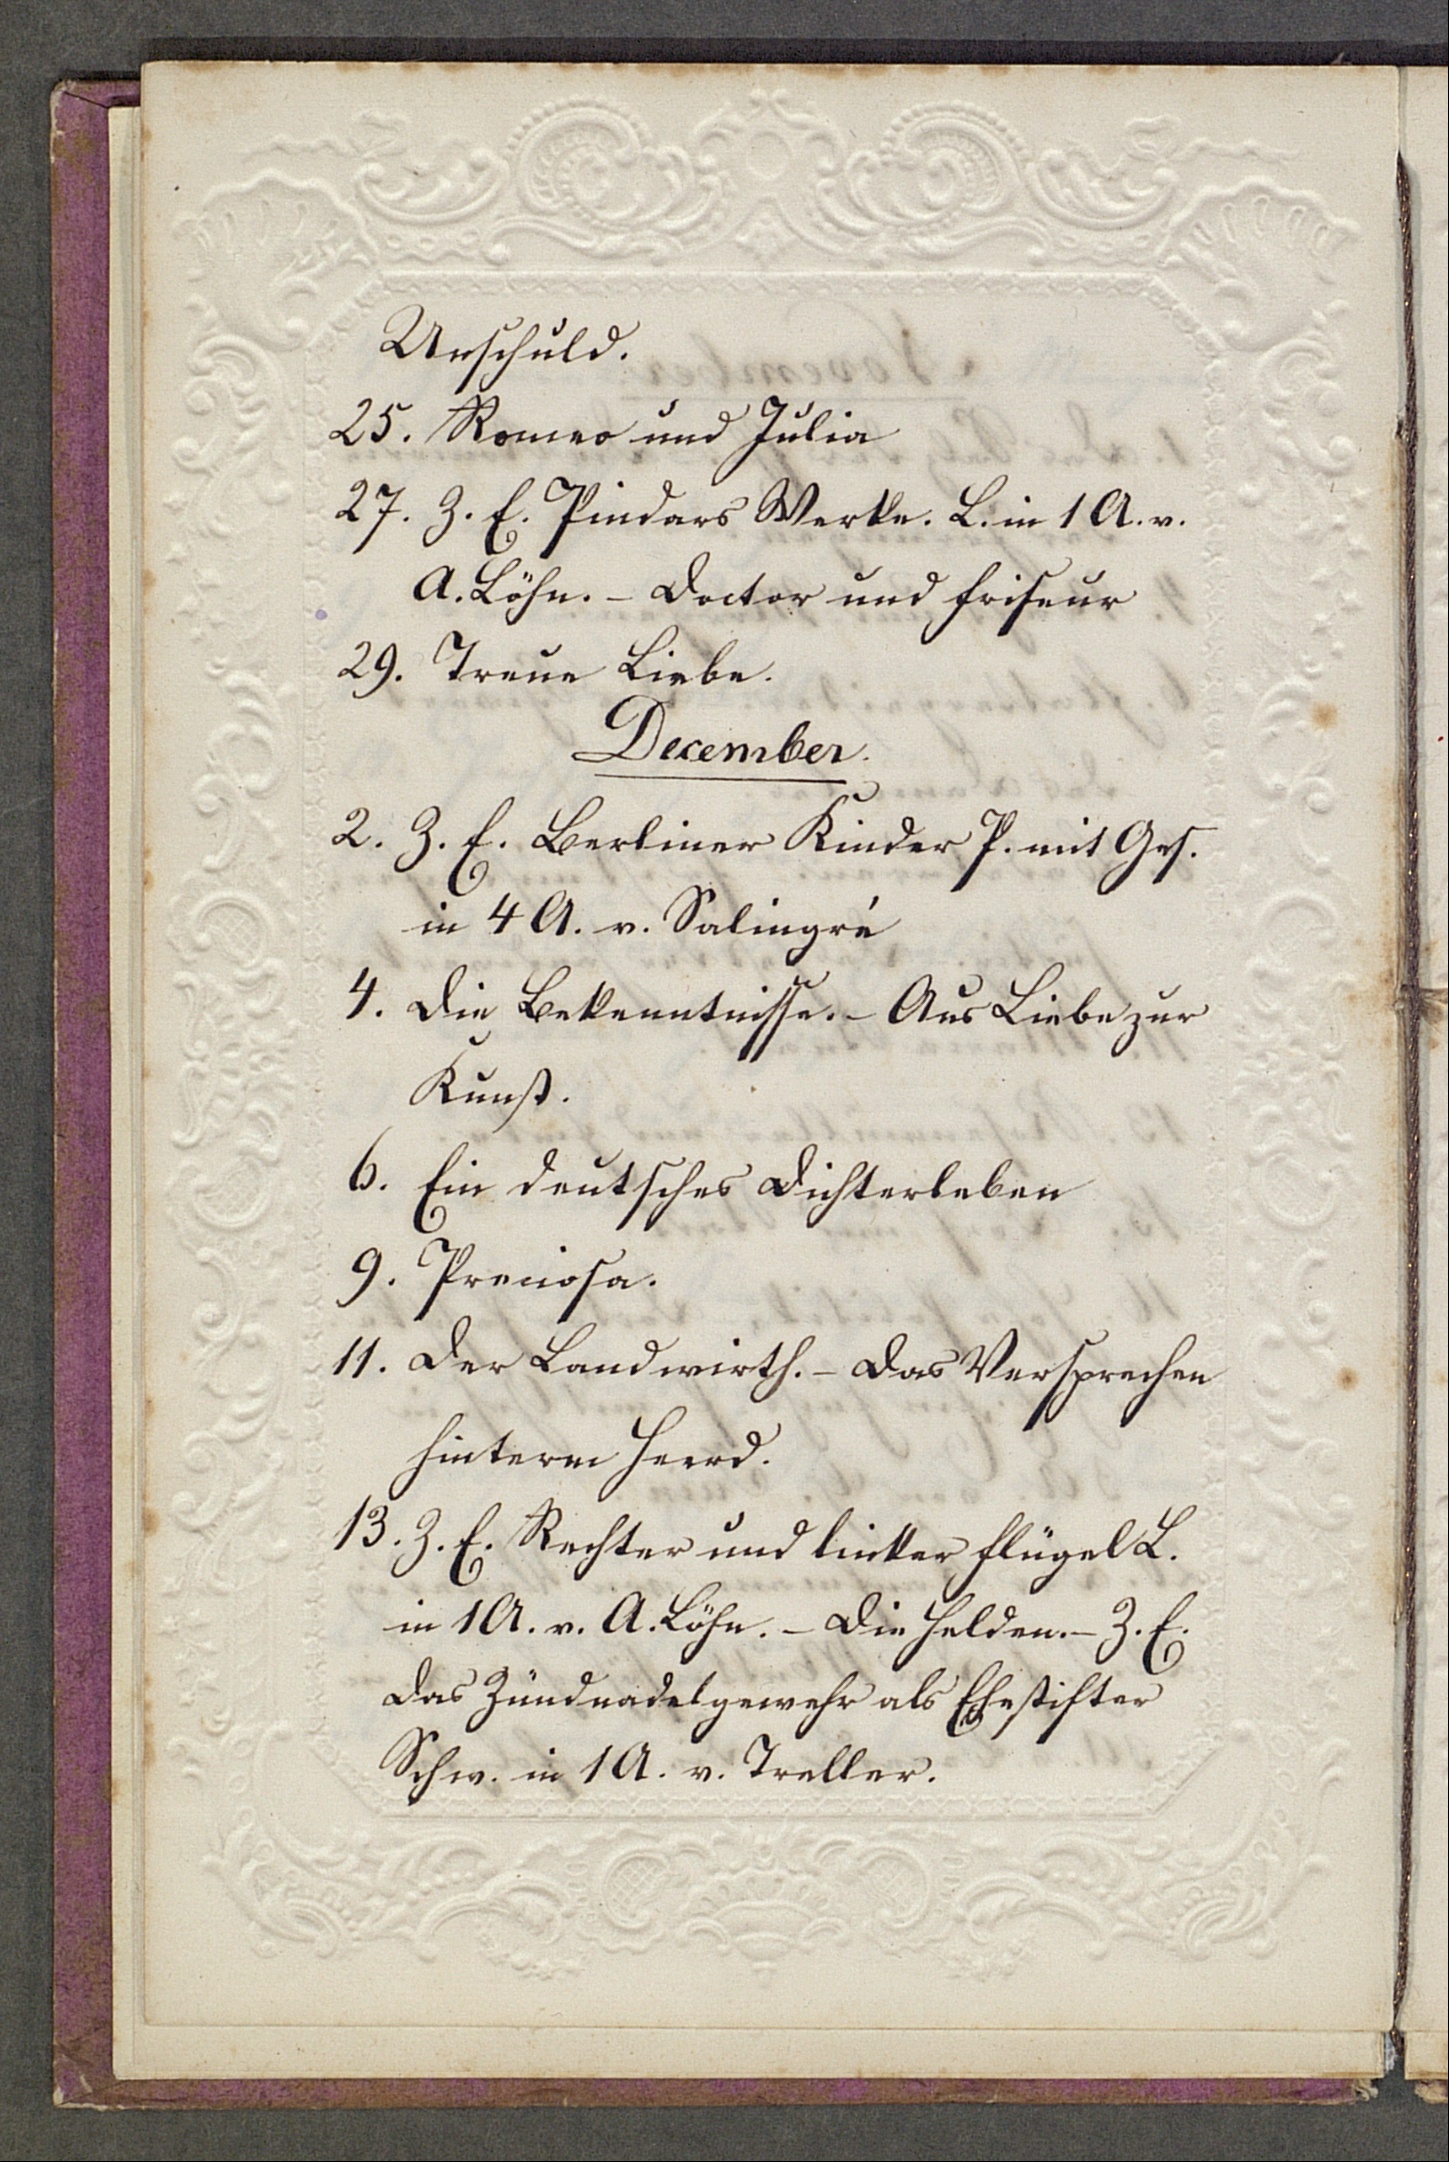 Unschuld.
25. Romeo und Julia
27. Z. E. Pindars Werke. L. in 1 A. v.
A. Löhn. – Doctor und Friseur
29. Treue Liebe.
December.
2. Z. E. Berliner Kinder P. mit Ges.
in 4 A. v. Salingré
4. Die Bekenntnisse. – Aus Liebe zur
Kunst.
6. Ein deutsches Dichterleben
9. Preciosa.
11. Der Landwirth. – Das Versprechen
hinterm Heerd.
13. Z. E. Rechter und linker Flügel L.
in 1 A. v. A. Löhn. – Die Helden. – Z. E.
Das Zündnadelgewehr als Ehestifter
Schw. in 1 A. v. Treller.